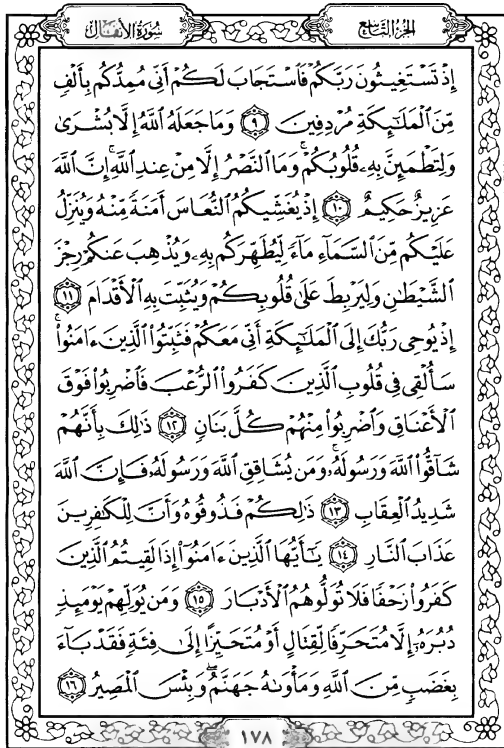 سُورَةُ الأَنفَالِ
الجُزءُ التَّاسِعُ
إِذْ تَسْتَغِيثُونَ رَبَّكُمْ فَٱسْتَجَابَ لَكُمْ أَنِّى مُمِدُّكُم بِأَلْفٍ
مِّنَ ٱلْمَلَـٰٓئِكَةِ مُرْدِفِينَ ٩ وَمَا جَعَلَهُ ٱللَّهُ إِلَّا بُشْرَىٰ
وَلِتَطْمَئِنَّ بِهِۦ قُلُوبُكُمْ ۚ وَمَا ٱلنَّصْرُ إِلَّا مِنْ عِندِ ٱللَّهِ ۚ إِنَّ ٱللَّهَ
عَزِيزٌ حَكِيمٌ ١٠ إِذْ يُغَشِّيكُمُ ٱلنُّعَاسَ أَمَنَةً مِّنْهُ وَيُنَزِّلُ
عَلَيْكُم مِّنَ ٱلسَّمَآءِ مَآءً لِّيُطَهِّرَكُم بِهِۦ وَيُذْهِبَ عَنكُمْ رِجْزَ
ٱلشَّيْطَـٰنِ وَلِيَرْبِطَ عَلَىٰ قُلُوبِكُمْ وَيُثَبِّتَ بِهِ ٱلْأَقْدَامَ ١١
إِذْ يُوحِى رَبُّكَ إِلَى ٱلْمَلَـٰٓئِكَةِ أَنِّى مَعَكُمْ فَثَبِّتُوا۟ ٱلَّذِينَ ءَامَنُوا۟ ۚ
سَأُلْقِى فِى قُلُوبِ ٱلَّذِينَ كَفَرُوا۟ ٱلرُّعْبَ فَٱضْرِبُوا۟ فَوْقَ
ٱلْأَعْنَاقِ وَٱضْرِبُوا۟ مِنْهُمْ كُلَّ بَنَانٍ ١٢ ذَٰلِكَ بِأَنَّهُمْ
شَآقُّوا۟ ٱللَّهَ وَرَسُولَهُۥ ۚ وَمَن يُشَاقِقِ ٱللَّهَ وَرَسُولَهُۥ فَإِنَّ ٱللَّهَ
شَدِيدُ ٱلْعِقَابِ ١٣ ذَٰلِكُمْ فَذُوقُوهُ وَأَنَّ لِلْكَـٰفِرِينَ
عَذَابَ ٱلنَّارِ ١٤ يَـٰٓأَيُّهَا ٱلَّذِينَ ءَامَنُوٓا۟ إِذَا لَقِيتُمُ ٱلَّذِينَ
كَفَرُوا۟ زَحْفًا فَلَا تُوَلُّوهُمُ ٱلْأَدْبَارَ ١٥ وَمَن يُوَلِّهِمْ يَوْمَئِذٍ
دُبُرَهُۥٓ إِلَّا مُتَحَرِّفًا لِّقِتَالٍ أَوْ مُتَحَيِّزًا إِلَىٰ فِئَةٍ فَقَدْ بَآءَ
بِغَضَبٍ مِّنَ ٱللَّهِ وَمَأْوَىٰهُ جَهَنَّمُ ۖ وَبِئْسَ ٱلْمَصِيرُ ١٦
١٧٨